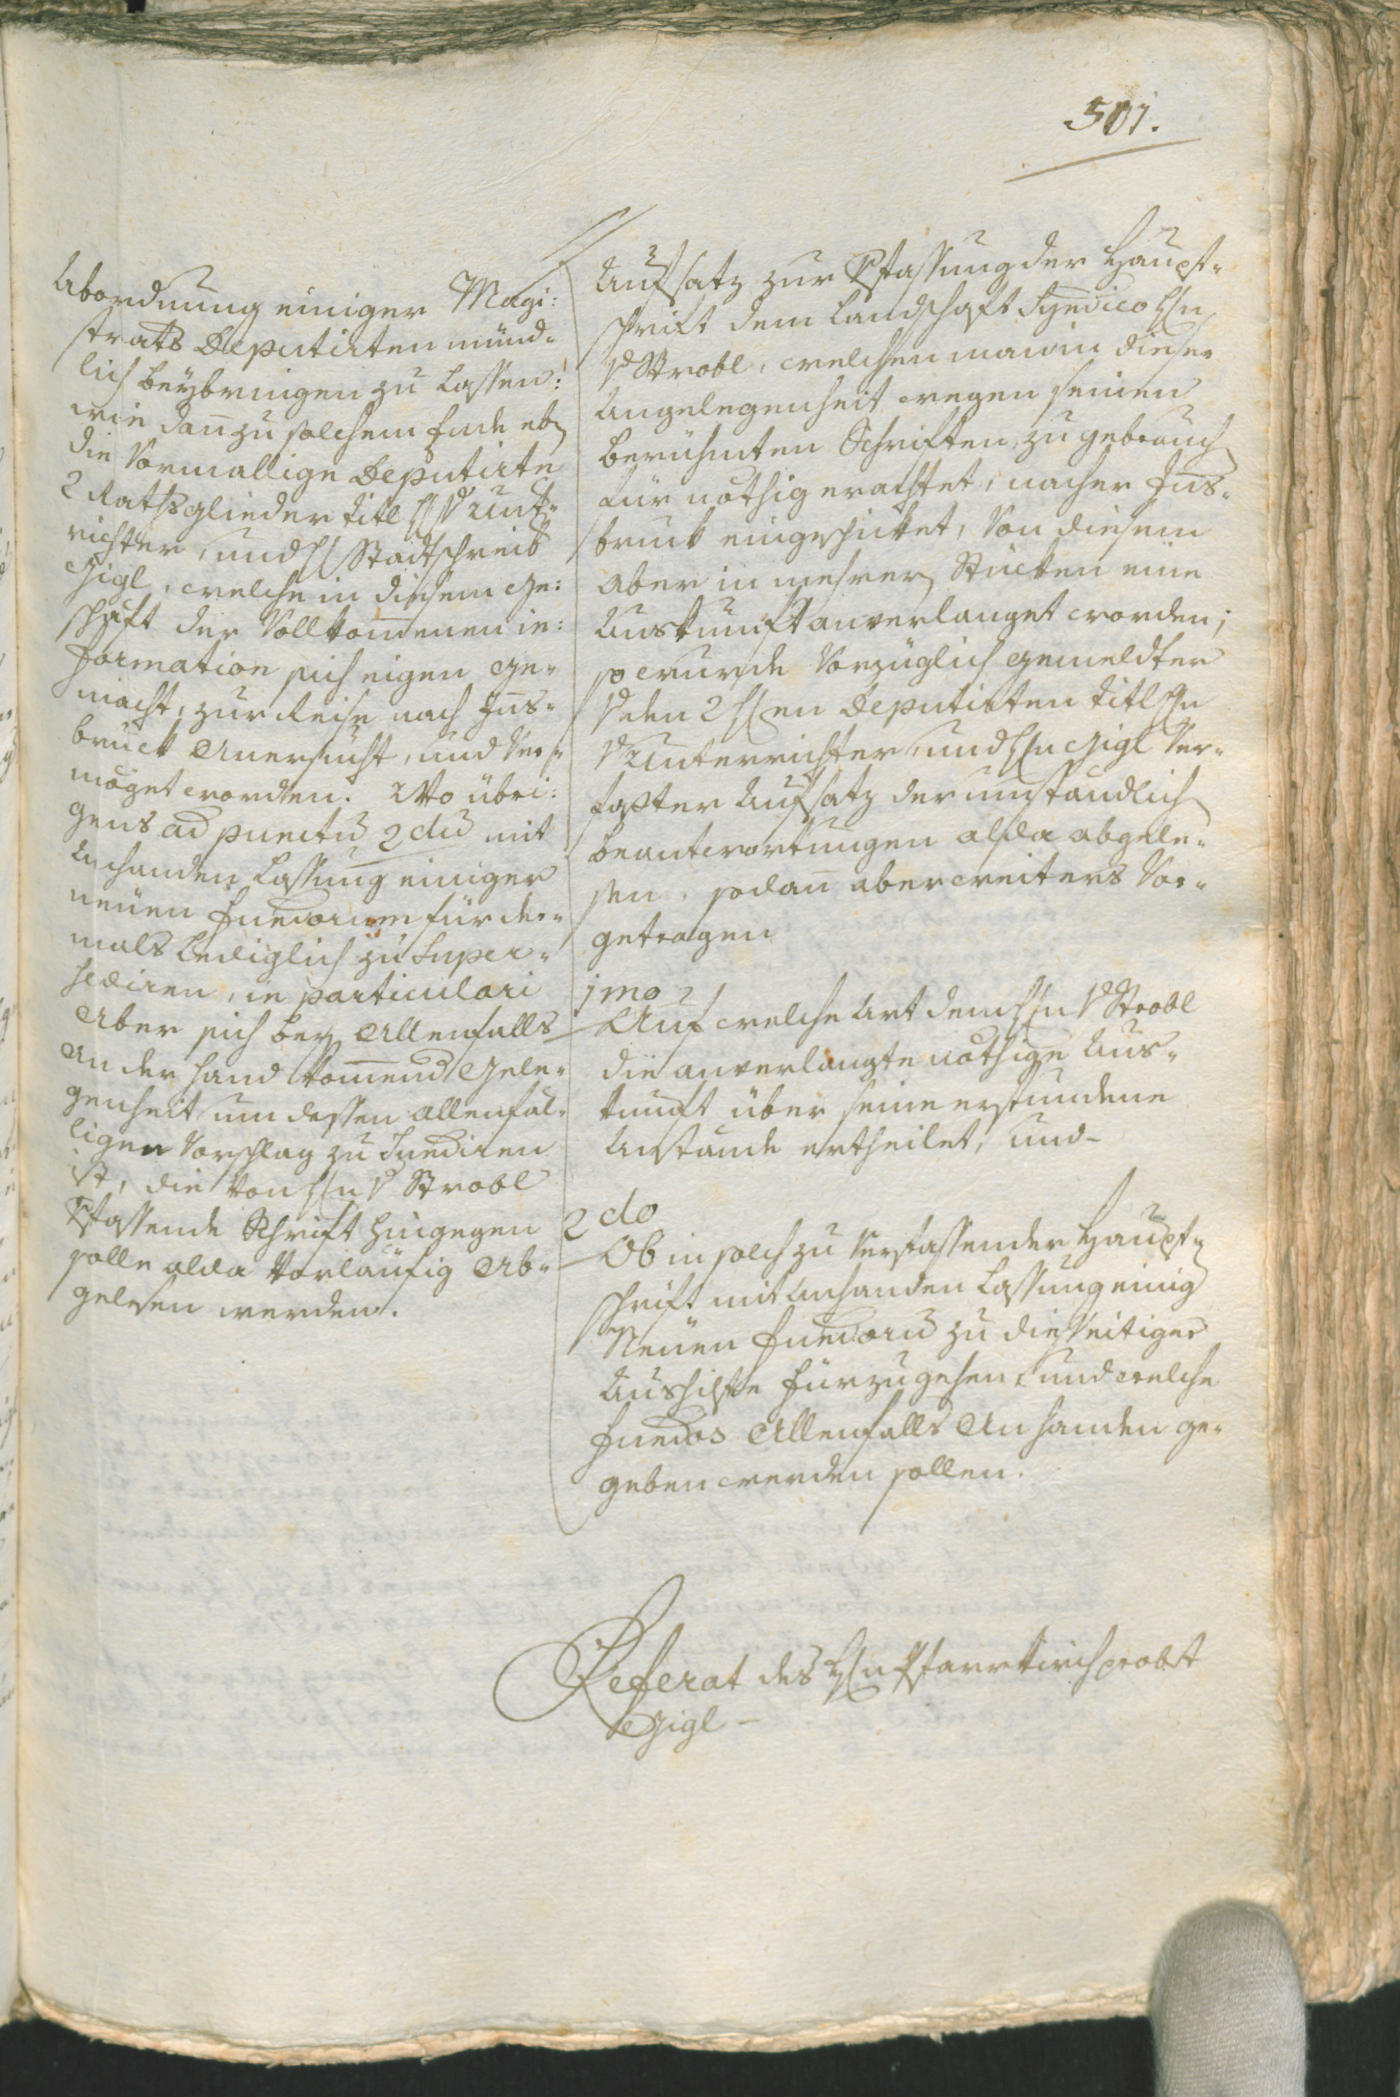 501.
Abordnung einiger Magi:
strats Deputirten münd-
lich beybringen zu lassen:
wie dan̄ zu solchem Ende eb
die Vormallige Deputirte
2 Rathsglieder titl H V Unt-
richter, und H Stadtschreib
Gigl, welche in diesem Ge:
schäft der Vollkom̄enen in:
formation sich eigen ge-
macht, zur Reise nach Ins-
bruck anersucht, und Ver-
möget worden. Wo übri:
gens ad punctū 2dū mit
Anhanden Lassung einiger
neüen fuedorum für der-
mals lediglich zu Super-
sediren, in particulari
Aber sich bey Allenfalls
an der hand kom̄end Gele-
genheit um dessen allenfäl-
ligen Vorschlag zu
ist, die von H V Strobl
Vfassende Schrift hingegen
solle alda Vorläufig Ab-
gelesen werden.
Aufsatz zur Vfassung der Haupt-
schrift dem Landschaft Syndico Hn
V Strobl, welchen man in dieser
Angelegenheit wegen seinen
berühmten Schriften zu gebrauch
für nöthig erachtet, nacher Ins-
bruck eingeschicket, Von diesem
aber in mehrern Stücken eine
Auskunft anverlanget worden;
so wurde Vorzüglich Gemeldter
V den 2 Hen Deputirten titl Hn
V Unterrichter, und Hn Gigl Ver-
faßter Aufsatz der umständlich
beantwortungen alda abgele-
sen, sodan̄ aber weiters Vor-
getragen
1mo
Auf welche Art dem Hn V Strobl
die anverlangte nöthige Aus-
kunft über seine erfundene
Anstände ertheilet, und-
2do
Ob in solch zu Verfassender Haupt-
schrift mit Anhanden Lassung einig
Neüen fuedorū zu dießeitiger
Aushilfe fürzugehen, und welche
fuedos Allenfalls An handen ge-
geben werden sollen.
Referat des Hn Pfarrkirchprobst
Gigl-